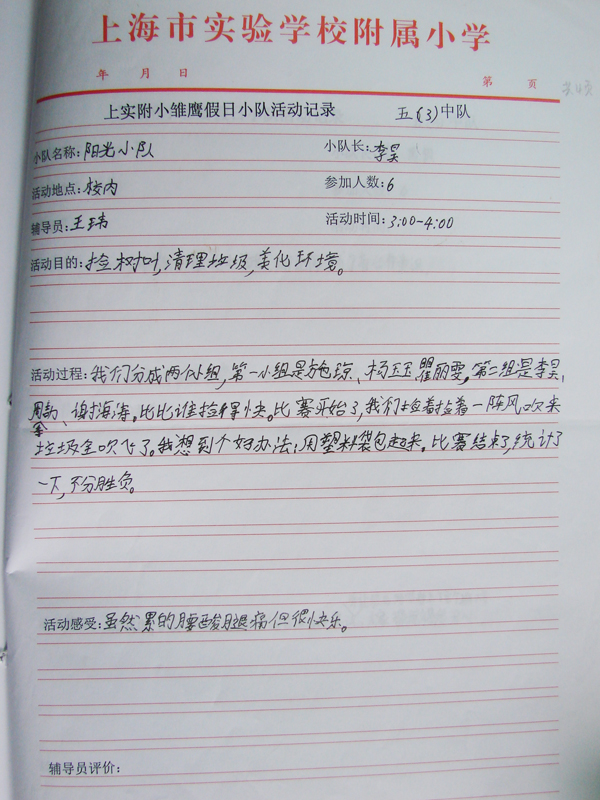 上海市实验学校附属小学
年 月 日 第 页
上实附小雏鹰假日小队活动记录 五(3)中队
小队名称:阳光小队 小队长:李昊
活动地点:校内 参加人数:6
辅导员:王玮 活动时间:3:00-4:00
活动目的:捡树叶,清理垃圾,美化环境。
活动过程:我们分成两个小组,第一小组是施琼、杨玉玉 瞿丽雯。第二组是李昊、
周韵、谢海涛。比比谁捡得快。比赛开始了,我们捡着捡着一阵风吹来
垃圾全吹飞了。我想到个好办法:用塑料袋包起来。比赛结束了,统计了
一下,不分胜负。
活动感受:虽然累的腰酸腿痛但很快乐。
辅导员评价: